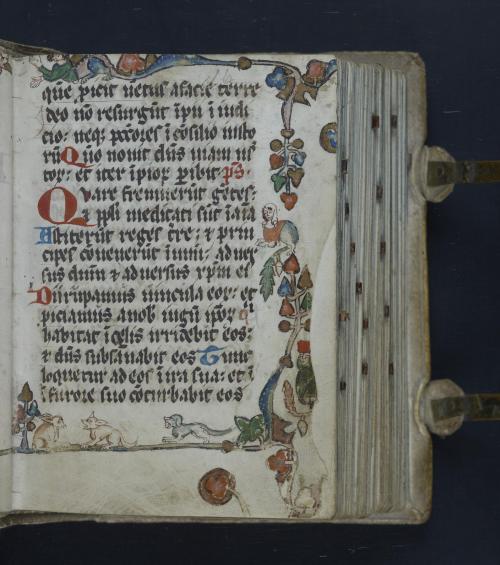 que ꝓicit uetus a facie terre
deo nō resurgūt īpii ī iudi
cio: neqꝫ pctōres ī cōsilio iusto
rū Qm̄ nouit dn̄s uiam ius
tor: et iter īpior ꝑibit ps.
Quare fremuerūt gētes:
⁊ ppli meditati sūt īaīa
Astiterūt reges tr̄e; ⁊ prin
cipes cōuenerūt ī unū: aduer
sus dn̄m ⁊ aduersus xpm eī
Dirūpamus uincula eor: et
ꝓiciamus a nob iugū ipor q
habitat ī celis irridebit eos:
⁊ dn̄s subsanabit eos Tunc
loquetur ad eos ī ira sua: et ī
furore suo cōturbabit eos